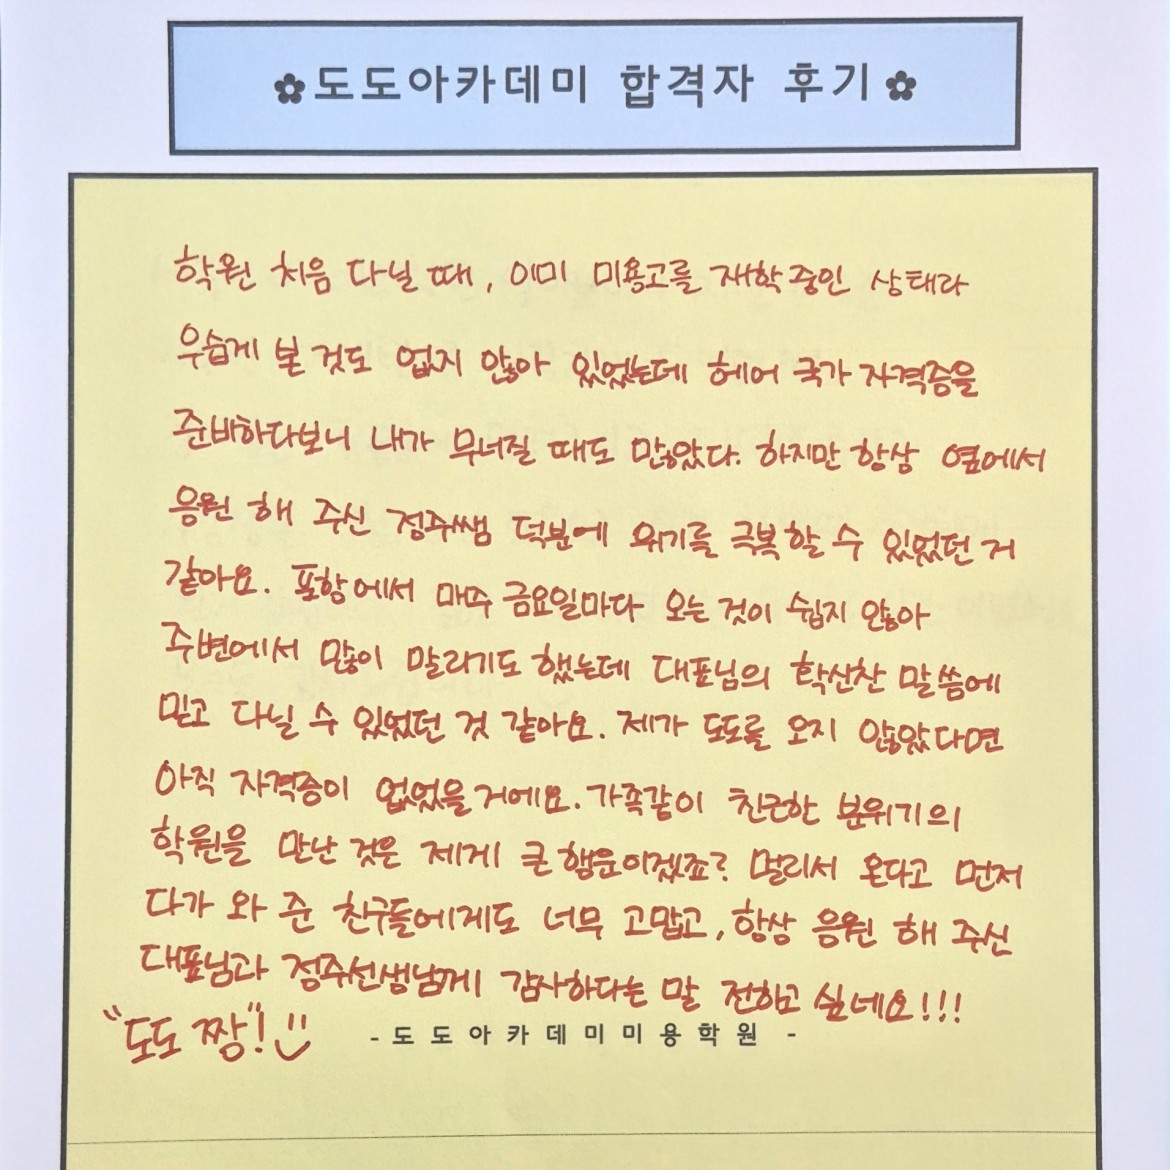 ✿도도아카데미 합격자 후기✿
학원 처음 다닐 때, 이미 미용고를 재학중인 상태라
우습게 본 것도 없지 않아 있었는데 헤어 국가 자격증을
준비하다보니 내가 무너질 때도 많았다. 하지만 항상 옆에서
응원 해 주신 정주쌤 덕분에 위기를 극복할 수 있었던 거
같아요. 포항에서 매주 금요일마다 오는 것이 쉽지 않아
주변에서 많이 말리기도 했는데 대표님의 확신찬 말씀에
믿고 다닐 수 있었던 것 같아요. 제가 도도를 오지 않았다면
아직 자격증이 없었을거에요. 가족같이 친근한 분위기의
학원을 만난 것은 제게 큰 행운이겠죠? 멀리서 온다고 먼저
다가 와 준 친구들에게도 너무 고맙고, 항상 응원 해 주신
대표님과 정주선생님께 감사하다는 말 전하고 싶네요!!!
"도도 짱"!
- 도도아카데미미용학원 -